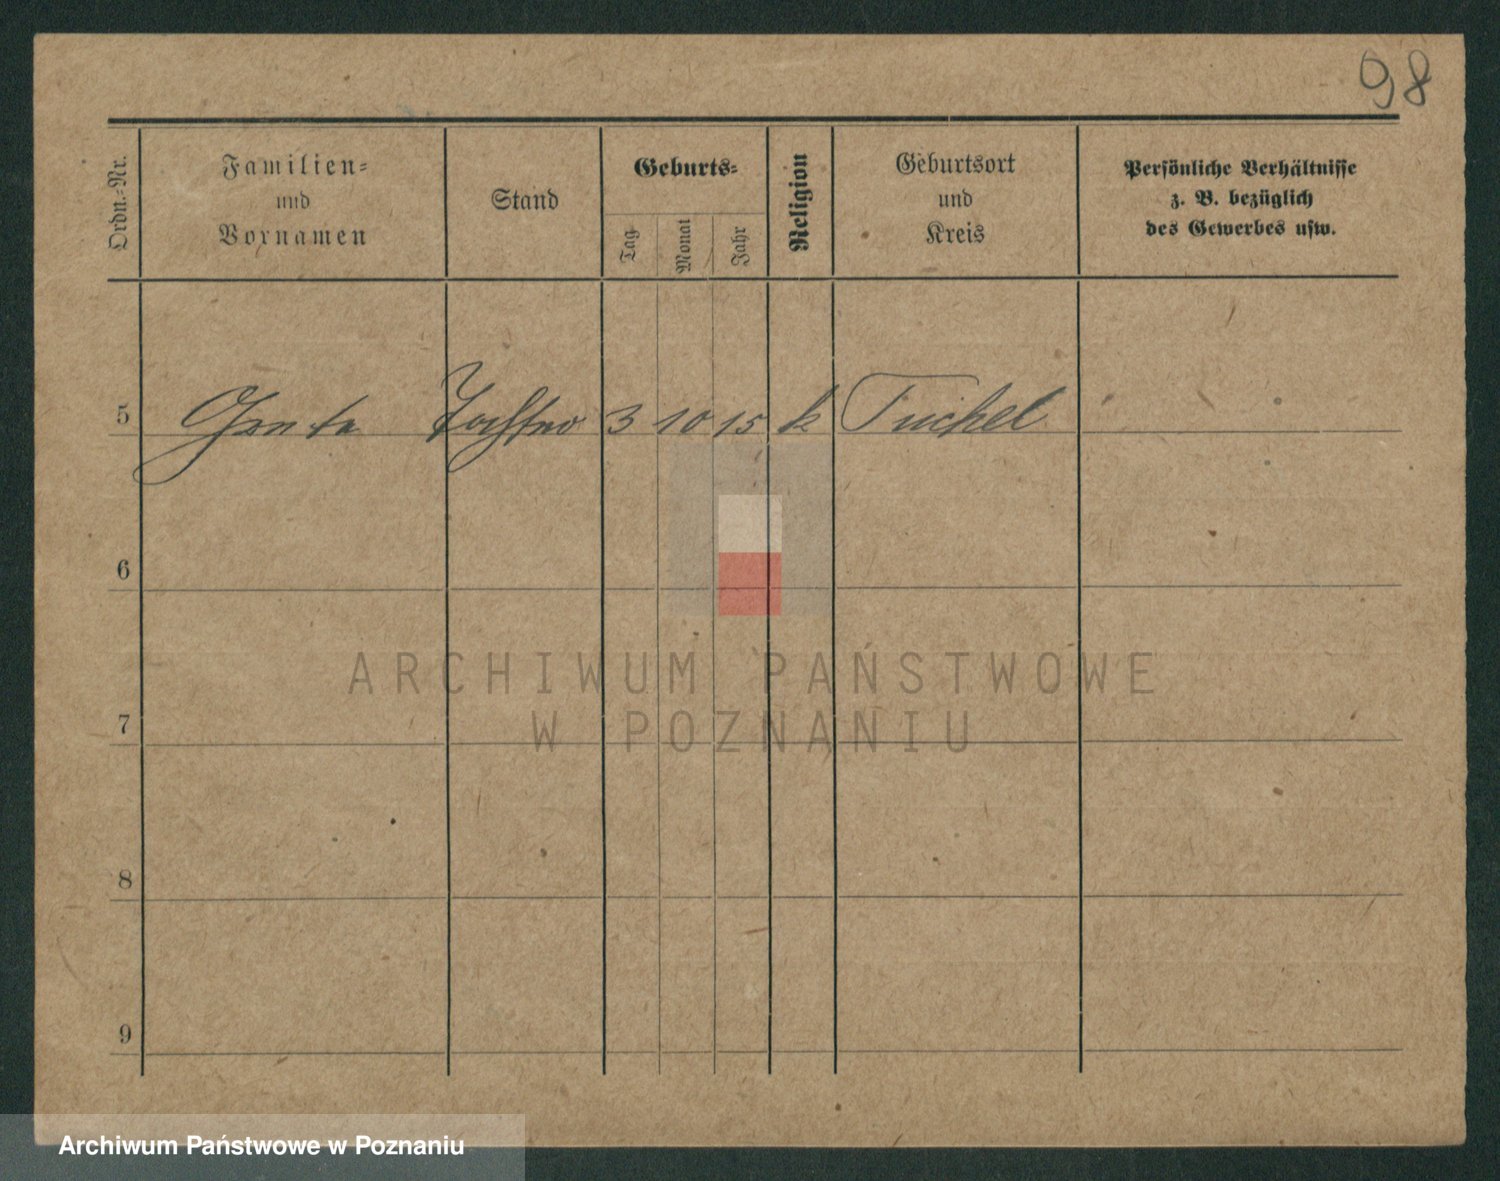 98
Ordn.-Nr.
Familien-
und
Vornamen
Stand
Geburts-
Tag
Monat
Jahr
Religion
Geburtsort
und
Kreis
Persönliche Verhältnisse
z. B. bezüglich
des Gewerbes usw.
5 Grete Tochter 3 10 15 k Tuchel
6
7
8
9
ARCHIWUM PAŃSTWOWE
W POZNANIU
Archiwum Państwowe w Poznaniu